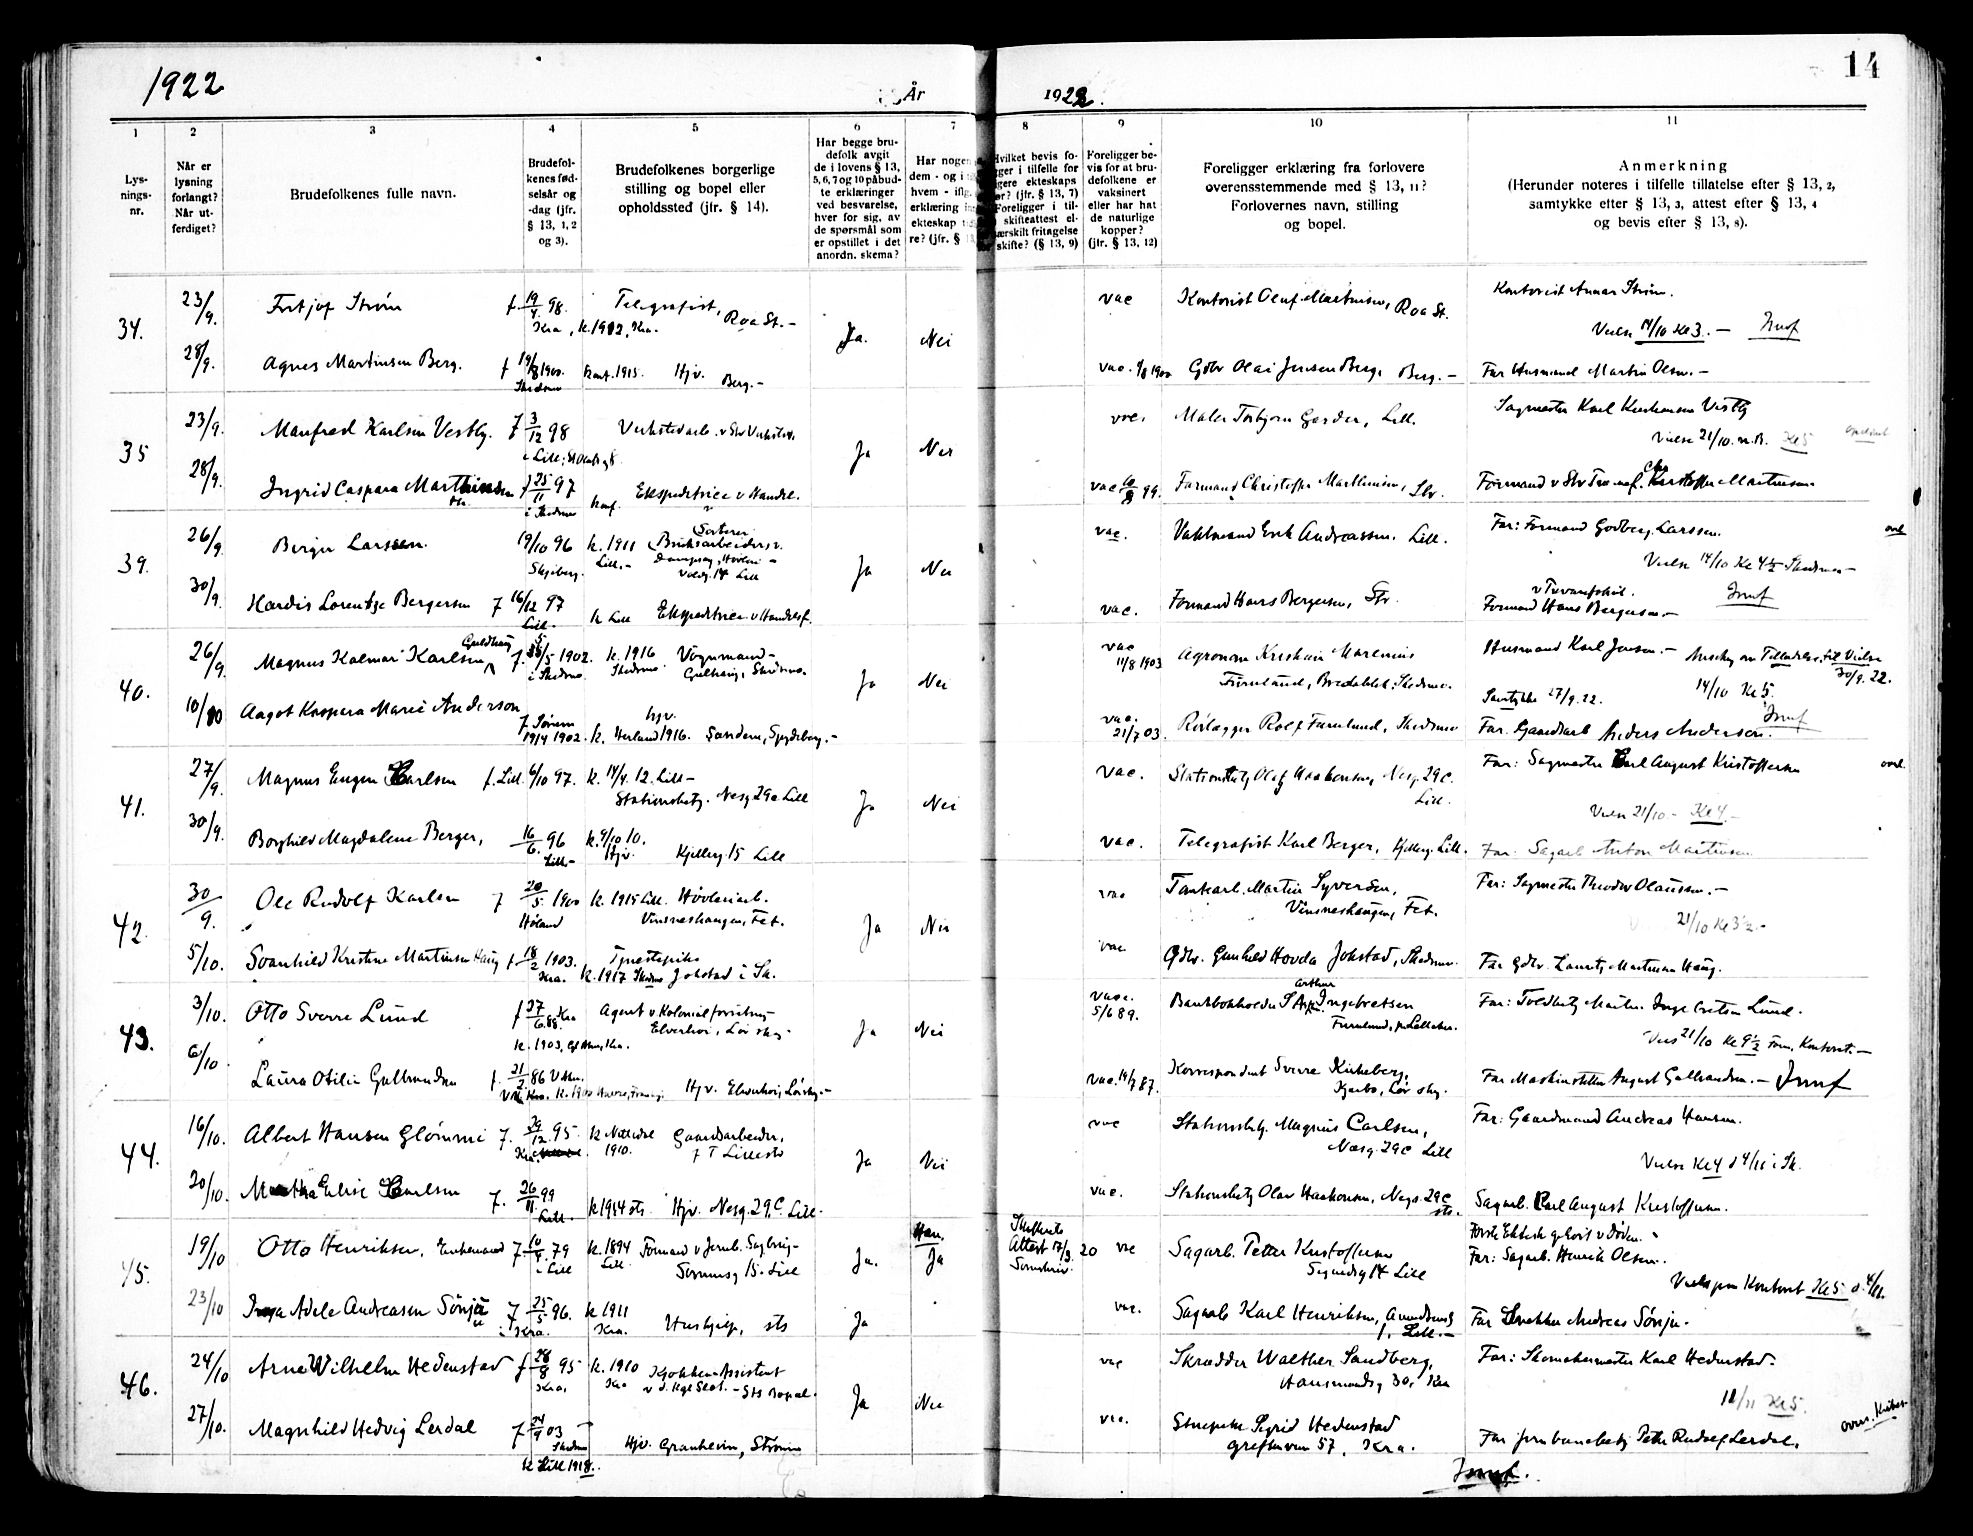 1922
År
1922.
14
1
2
3
4
5
6
7
8
9
10
11
Lys-
nings-
nr.
Når er
lysning
forlangt?
Når ut-
ferdiget?
Brudefolkenes fulle navn.
Brudefol-
kenes fød-
selsår og
-dag (jfr.
§ 13, 1, 2
og 3).
Brudefolkenes borgerlige
stilling og bopel eller
opholdssted (jfr. § 14).
Har begge bru-
defolk avgit
de i lovens § 13,
5, 6, 7 og 10 påbud-
te erklæringer
ved besvarelse,
hver for sig, av
de spørsmål som
er opstillet i det
anordn. skema?
Har nogen
dem - og i
hvem - iflg.
erklæring
ekteskap
re? (jfr. §
Hvilket bevis fo-
i tilfelle for
ekteskaps
(jfr. § 13, 7)
Foreligger i til-
skifteattest el-
særskilt fritagelse
skifte? (§ 13, 9)
Foreligger be-
vis for at bru-
defolkene er
vaksinert
eller har hat
de naturlige
kopper?
(jfr. § 13, 12)
Foreligger erklæring fra forlovere
overensstemmende med § 13, 11?
Forlovernes navn, stilling
og bopel.
Anmerkning
(Herunder noteres i tilfelle tillatelse efter § 13, 2,
samtykke efter § 13, 3, attest efter § 13, 4
og bevis efter § 13, 8).
34.
23/9.
Fritjof Strøm
f. 19/4 98.
Kra, k. 1912, Kra.
Telegrafist, Roa St. -
Ja.
Nei
vac
Kontorist Oluf Martinsen, Roa St.
Kontorist Annar Strøm.
Vielse 14/10 Kl 3. -
28/9.
Agnes Martinsen Berg.
f 19/8 1900.
Skedsmo
konf. 1915. Hjv. Berg. -
vac. 1900 Gdbr Olai Jensen Berg, Berg. -
Far Husmand Martin Olsen. -
35
23/9.
Manfred Karlsen Vestby.
f 3/12 98
Verkstedarb. v Stv Verksted.
Ja
Nei
vac.
Maler Torbjørn Garder, Lill.
Sagmester Karl Kristiansen Vestby
Vielse 21/10. Kl 5
28/9.
Ingrid Caspara Marthinsen
f 25/11 97
i Skedsmo
konf.
Ekspeditrice v Handel.
vac
Formand Christoffer Marthinsen, Str.
Formand v Str Christoffer Martinsen
39.
26/9.
Birger Larssen.
19/10 96
k. 1911
Lill. -
Sorterer
Bruksarbeider v.
Voldg. 14 Lill
Ja
Nei
vac.
Vaktmand Erik Andreassen, Lill.
Far: Formand Godberg Larssen.
Vielse 14/10 Kl 4½ Skedsmo -
30/9.
Hardis Lorentze Bergersen
f 16/12 97
Lill. -
k Lill
Ekspeditrice v Handelsf.
vac.
Formand Hans Bergersen, Str.
Formand Hans Bergersen. -
40.
26/9.
Magnus Kalmar Karlsen Guldhaug
f. 5/5 1902.
i Skedsmo
k. 1916
Skedsmo.
Vognmand -
Gulhaug, Skedsmo.
Ja
Nei
vac
11/8 1903
Agronom Kristian Marenius
Furulund, Skedsmo.
Husmand Karl Jensen. -
Tilladelse til Vielse
30/9. 22.
14/10 Kl 5.
Samtykke 27/9. 22.
10/10
Aagot Kaspara Marie Anderson
19/4 1902.
hjv.
k. Herland 1916. Sandem, Spydeberg. -
vac.
21/7 03.
Rørlægger Rolf Furulund, Skedsmo
Far. Gaardsarb Anders Andersen.
41.
27/9.
Magnus Eugen Carlsen
f. Lill. 6/10 97.
k. 14/4. 12. Lill -
Stationsbetj. Nesg 29c Lill
Ja
Nei
vac.
Stationsbetj Olaf Haakonsen, Nesg. 29c.
Lill.
Far: Sagmester Carl August Kristoffersen
Vielse 21/10 - Kl 4. -
30/9.
Borghild Magdalene Berger,
16/6. 96
Lill. -
k. 9/10 10.
Hjv. Kjellerg. 15 Lill
vac.
Telegrafist Karl Berger, Kjellerg. Lill.
Far: Sagarb Anton Martinsen
42.
30/9.
Ole Rudolf Karlsen
f 20/5. 1900
Høland
k. 1915 Lill. Høvleriarb.
Vinsneshaugen, Fet.
Ja
Nei
vac
Tomtearb. Martin Syversen,
Vinsneshaugen, Fet.
Far: Sagmester Theodor Olaussen. -
21/10 Kl 3½ -
5/10.
Svanhild Kristine Martinsen Haug
f 18/2 1903.
Kra.
Tjenestepike
k. 1917 Skedsmo Jokstad i Sk.
vac
Gdbr. Gunhild Hovda Jokstad, Skedsmo.
Far Gdbr. Lauritz Martinsen Haug.
43.
3/10.
Otto Sverre Lund
f 27/6. 88. Kra
k. 1903, Gl Aker, Kra.
Agent v Kolonialforretning
Elverhøi, Lørskog -
Ja
Nei
vacc.
5/6 89.
Bankbokholder Arthur Ingebretsen
Furulund, pr Lillestr.
Far: Toldbetj Martin Inge Lund.
Viels 21/10 Kl 9½ Form. Kontoret. -
6/10
Laura Otilie Gulbrandsen
f. 21/2. 86 V Aker.
Hjv. Elverhøi, Lørskog. -
vac. 14/7 87.
Korrespondent Sverre Kirkeberg,
Kjerbo, Lør skog.
Far Maskinstiller August Gulbrandsen. -
44.
16/10.
Albert Hansen Glømmi
f. 29/12. 95.
Kra.
k Nittedal
1910.
Gaardsarbeider,
f T Lillestr
Ja
Nei
vac
Stationsbetj. Magnus Carlsen,
Næsg. 29c Lill
Far: Gaardmand Andreas Hansen.
Vielse Kl 4 d 4/11 i Sk.
20/10.
Martha Elise Carlsen
f. 26/11. 99
Lill. -
k 1914 sts. Hjv. Nesg. 29. C. Lill.
vac.
Stationsbetj Olav Haakonsen, Nesg. 29c
sts.
Sagarb. Carl August Kristoffersen.
45.
19/10
Otto Henriksen, Enkemand
f 10/4. 79
i Lill
k. 1894
Lill.
Formand v Jernb. Sagbrug -
Stormsg 15. Lill
Ja.
Han.
Ja
Skifterets
Attest 17/3 20
Sorenskriv.
vac
Sagarb. Petter Kristoffersen
Sigurdsg 14 Lill
Første Ektesk ophørt v Døden.
Far: Sagarb. Henrik Olsen.
Viels pm Kontoret Kl 5 d. 4/11.
23/10
Inga Adele Andreasen Sönju
f 25/5. 96.
i Kra.
k 1911
Kra.
Hushjelp, sts
Ja
vac.
Sagarb Karl Henriksen,
f. Lill. -
Far Snekker Andreas Sönju.
46.
24/10
Arne Wilhelm Hedenstad
f 28/8 95
Kra.
k. 1910
Kra
Kjøkken Assistent
v d. Kgl Slot. - sts Bopæl.
Ja
Nei
vac
Skrædder Walther Sandberg,
Hansmandsg 30, Kra
Far: Skomakermester Karl Hedenstad.
11/11 Kl 5.
27/10.
Magnhild Hedvig Lerdal
f 24/9 03
Skedsmo
k Lill 1918.
Hjv. Granheim, Strømm
vac.
Sigrid Hedenstad
Grefsenveien 57, Kra.
Far jernbanebetj Peter Rudolf Lerdal.